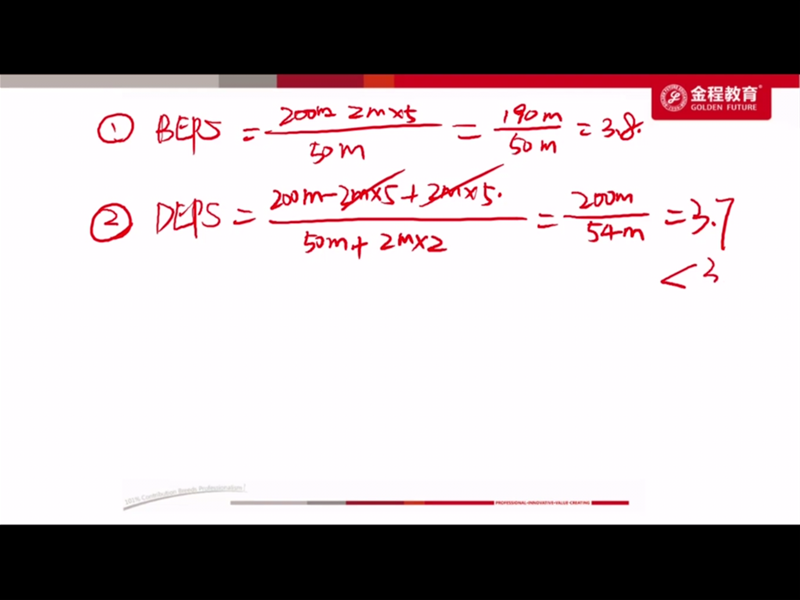 金程教育
GOLDEN FUTURE
① BEPS = 200m 2m×5 / 50m = 190m / 50m = 3.8.
② DEPS = 200m-2m×5+2m×5. / 50m+2m×2 = 200m / 54m = 3.7
< 3
101% Contribution Breeds Professionalism!
PROFESSIONAL·INNOVATIVE·VALUE-CREATING